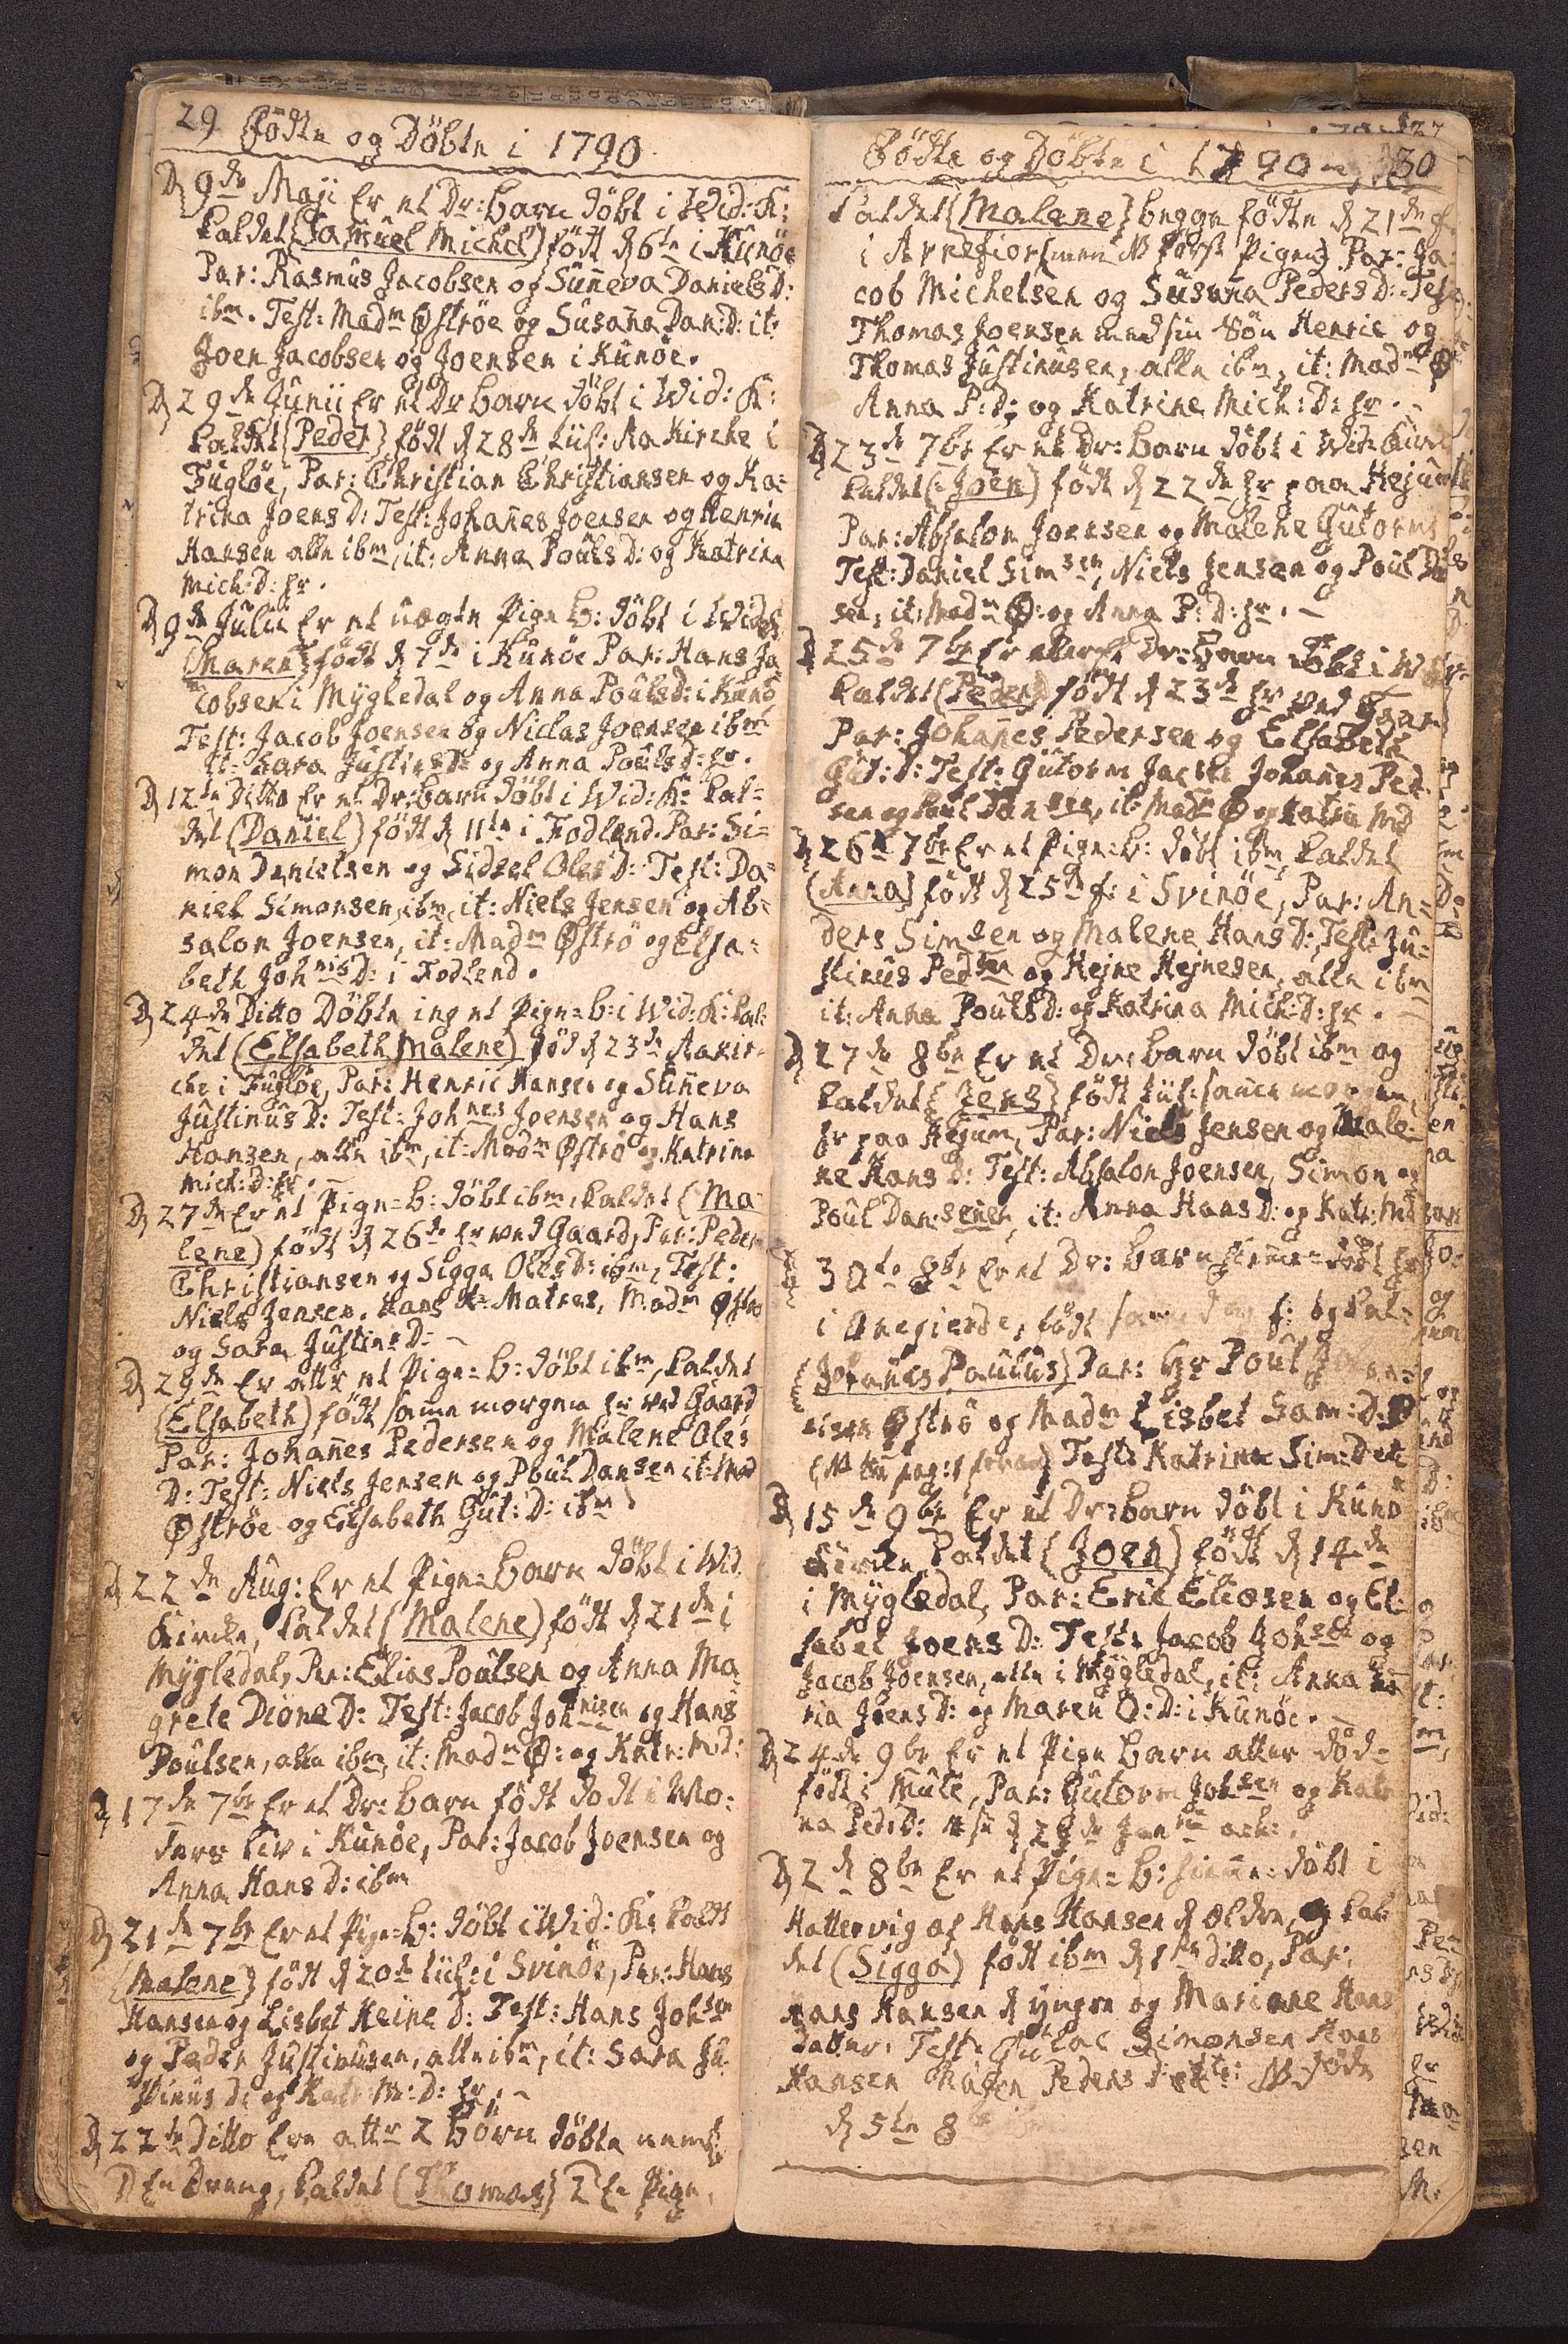 29 Födte og Döbte i 1790
D 9de Maji Er et Dr: barn döbt i Wid: K:
kaldet (Samuel Michel) födt d 6te i Kunöe
Par: Rasmus Jacobsen og Suneva Daniels D:
ibm. Test: Madm Öströe og Susaña Dan: D: it:
Joen Jacobsen og Joensen i Kunöe.
D 29de Junii Er et Dr barn döbt i Wid: K:
kaldet (Peder) födt d 28de tilf: Aa Kirche i
Fuglöe, Par: Christian Christiansen og Ka=
trina Joens D: Test: Johañes Joensen og Henric
Hansen alle ibm, it: Anna Pouls D: og Katrina
Mich: D: hr.
D 9de Julii Er et uægte Pige b: döbt i Wid: K
(Maren) födt d 7de i Kunöe Par: Hans Ja
cobsen i Mygledal og Anna Pouls D: i Kunö
Test: Jacob Joensen og Niclas Joensen ibm
it: Sara Justins D: og Anna Pouls D: hr.
D 12te Ditto Er et Dr: barn döbt i Wid: K: kal=
det (Daniel) födt d 11te i Fodlend. Par: Si=
mon Danielsen og Sidsel Oles D: Test: Da=
niel Simonsen, ibm, it: Niels Jensen og Ab=
salon Joensen, it: Madm Öströ og Elsa=
beth Johnis D: i Fodlend.
D 24de Ditto Döbte ieg et Pige=b: i Wid: K: kal=
det (Elsabeth Malene) föd d 23de Aakir=
che i Fuglöe, Par: Henric Hansen og Suñeva
Justinus D: Test: Johnes Joensen og Hans
Hansen, alle ibm, it: Madm Öströ og Katrina
Mich: D: hr. –
D 27de Er et Pige=b: döbt ibm, kaldet (Ma=
lene) födt d 26de hr ved Gaard, Par: Peder
Christiansen og Sigga Oles D: ibm, Test:
Niels Jensen, Hans K= Matras, Madm Öströ
og Sara Justins D: –
D 29de Er attr et Pige=b: döbt ibm, kaldet
(Elsabeth) födt same morgen hr ved Gaard
Par: Johañes Pedersen og Malene Oles
D: Test: Niels Jensen og Poul Dansen it: Mad
Öströe og Elsabeth Gut: D: ibm
D 22de Aug: Er et Pige=barn döbt i Wid.
Kirche, kaldet (Malene) födt d 21de i
Mygledal, Par: Elias Poulsen og Anna Ma
grete Dione D: Test: Jacob Johnisen og Hans
Poulsen, alle ibm, it: Madm Ö: og Katr: M: D:
D 17de 7br Er et Dr: barn födt dödt i Mo=
ders liv i Kunöe, Par: Jacob Joensen og
Anna Hans D: ibm
D 21de 7br Er et Pige=b: döbt i Wid: K: kaldt
(Malene) födt d 20de tilf: i Svinöe, Par: Hans
Hansen og Lisbet Heine D: Test: Hans Johsen
og Peder Justinusen, alle ibm, it: Sara Ju
stinus D: og Katr: M: D: hr. –
D 22de Ditto Ere attr 2 börn döbte neml:
1) En dreng, kaldet (Thomas) 2 En Pige,
Födte og Döbte i 1790 30
kaldet (Malene) begge födte d 21de f.
i Arnefior (men NB först Pigen) Par: Ja=
cob Michelsen og Susaña Peders D: Test:
Thomas Joensen med sin Sön Henric og
Thomas Justinusen, alle ibm, it: Madm Ö
Anna P: D: og Katrine Mich: D: hr. –
D 23de 7br Er et Dr: barn döbt i Wid: Kirche
kaldet (Joen) födt d 22de hr paa Hejum
Par: Absalon Joensen og Malene Gutorms
Test: Daniel Simsen, Niels Jensen og Poul Da
sen, it: Madm Ö: og Anna P: D: hr. –
D 25de 7br Er et Dr: barn döbt i W
kaldet (Peder) födt d 23de hr ved Gaar
Par: Johañes Pedersen og Elsabeth
Gut: D: Test: Gutorm Jacobs Johañes Ped
sen og Poul Dansen, it: Madm Ö og Katrin M D
D 26de 7br Er et Pige=b: döbt ibm kaldet
(Anna) födt d 25de f: i Svinöe, Par: An=
ders Simsen og Malene Hans D: Test: Ju=
stinus Pedsen og Hejne Hejnesen, alle ibm
it: Anna Pouls D: og Katrina Mich: D: hr. –
D 27de 8br Er et Dr: barn döbt ibm og
kaldet (Jens) födt tilf: same morgen,
hr paa Hejum, Par: Niels Jensen og Male=
ne Hans D: Test: Absalon Joensen, Simon og
Poul Dan:senen, it: Anna Hans D: og Katr: M D
30te 8br Er et Dr: barn hieme=döbt hr
i Onegierde, födt same dag f: og kal=
(Johañes Paulus) Par: Hr Poul
Öströ og Madm Lisbet Sam: D: Ö
Test: Katrina Sim: D
D 15de 9br Er et Dr: barn döbt i Kunö
Kirche kaldet (Joen) födt d 14de
i Mygledal, Par: Eric Eliasen og El=
sabet Joens D: Test: Jacob Johsen og
Jacob Joensen, alle i Mygledal, it: Anna Ka
ria Joens D: og Maren O: D: i Kunöe. –
D 24de 9br Er et Pige barn atter död=
födt i Mule, Par: Gutorm Johsen og Katr
na Peds D:
D 2de 8br Er et Pige=b: hieme=döbt i
Hattervig af Hans Hansen d ældre, og kal
det (Sigga) födt ibm d 1te ditto, Par:
Hans Hansen d yngre og Mariane Hans
datter, Test: Simonsen Hans
Hansen Peders D: NB Döde
d 5te 8